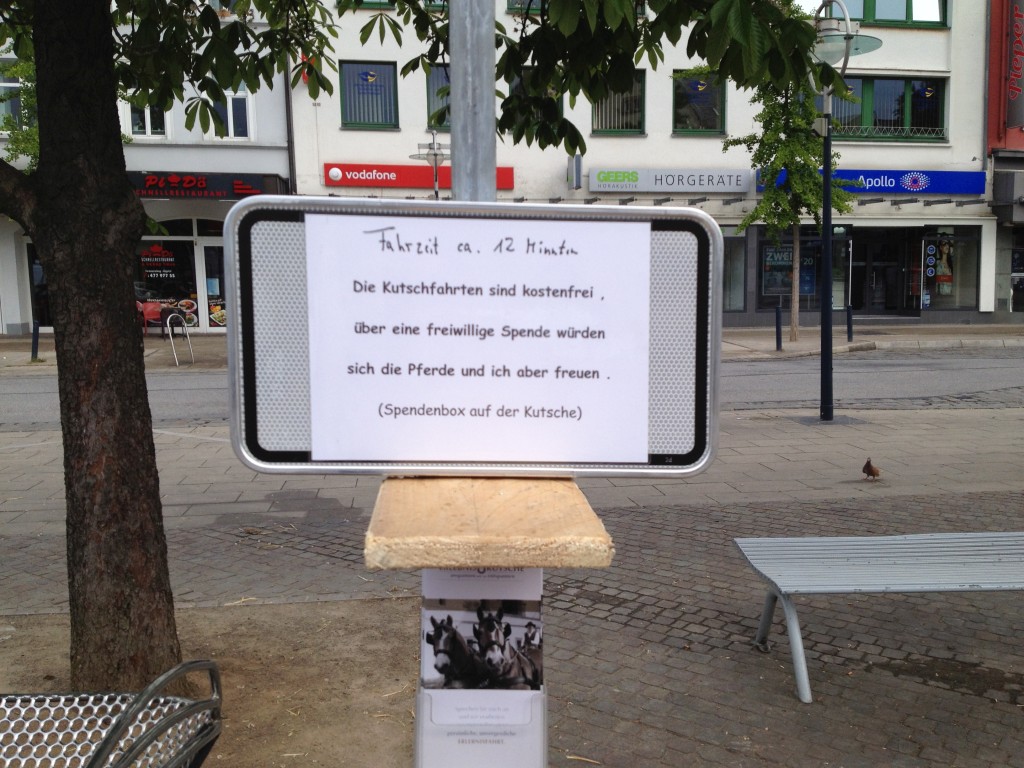 PiDö
SCHNELLRESTAURANT
vodafone
GEERS
HÖRAKUSTIK
HÖRGERÄTE
Apollo
Fahrzeit ca. 12 Minuten
Die Kutschfahrten sind kostenfrei ,
über eine freiwillige Spende würden
sich die Pferde und ich aber freuen .
(Spendenbox auf der Kutsche)
ERLEBNISFAHRT